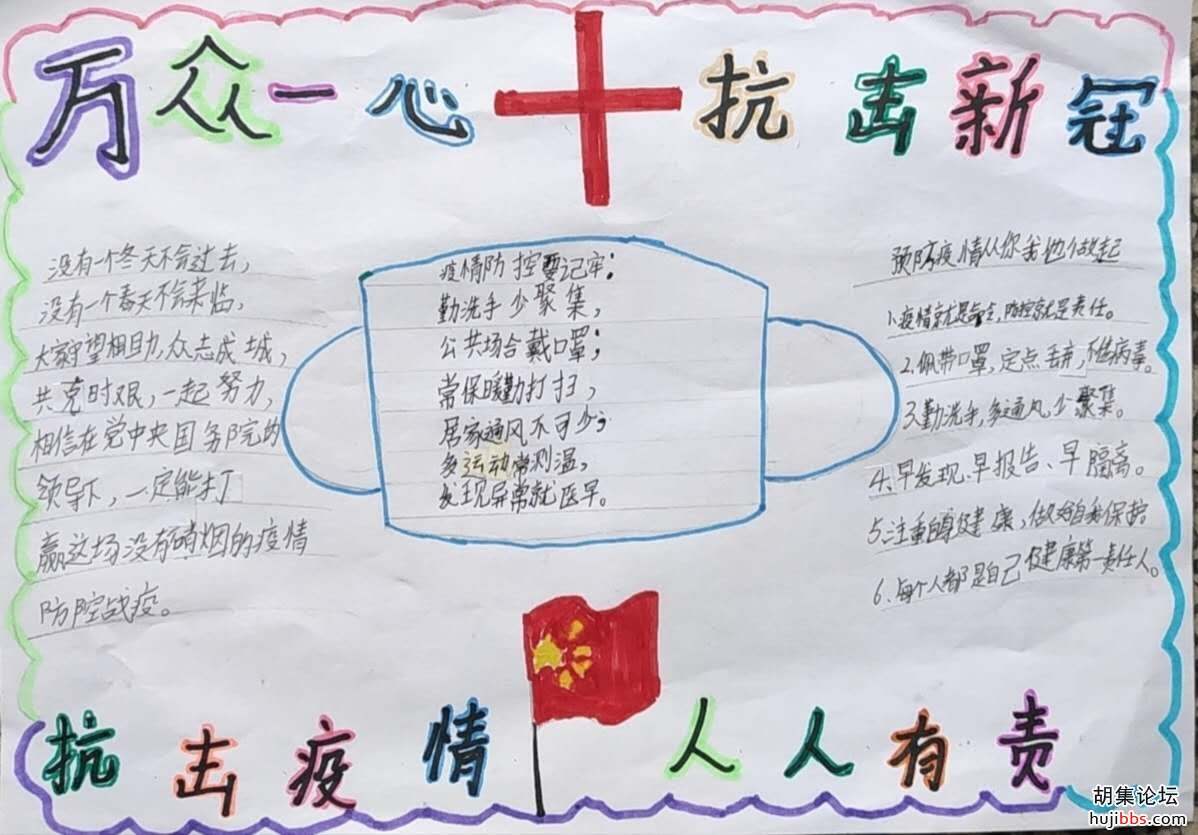 万众一心 抗击新冠
没有一个冬天不会过去，
没有一个春天不会来临，
大家守望相助，众志成城，
共克时艰，一起努力，
相信在党中央国务院的
领导下，一定能打
赢这场没有硝烟的疫情
防控战疫。
疫情防控要记牢：
勤洗手少聚集，
公共场合戴口罩；
常保暖勤打扫，
居家通风不可少；
多运动常测温，
发现异常就医早。
预防疫情从你我他做起
1.疫情就是命令，防控就是责任。
2.佩带口罩，定点丢弃，不传病毒。
3.勤洗手，多通风，少聚集。
4.早发现、早报告、早隔离。
5.注重健康，做好自我保护
6.每个人都是自己健康第一责任人。
抗击疫情 人人有责
胡集论坛
hujibbs.com